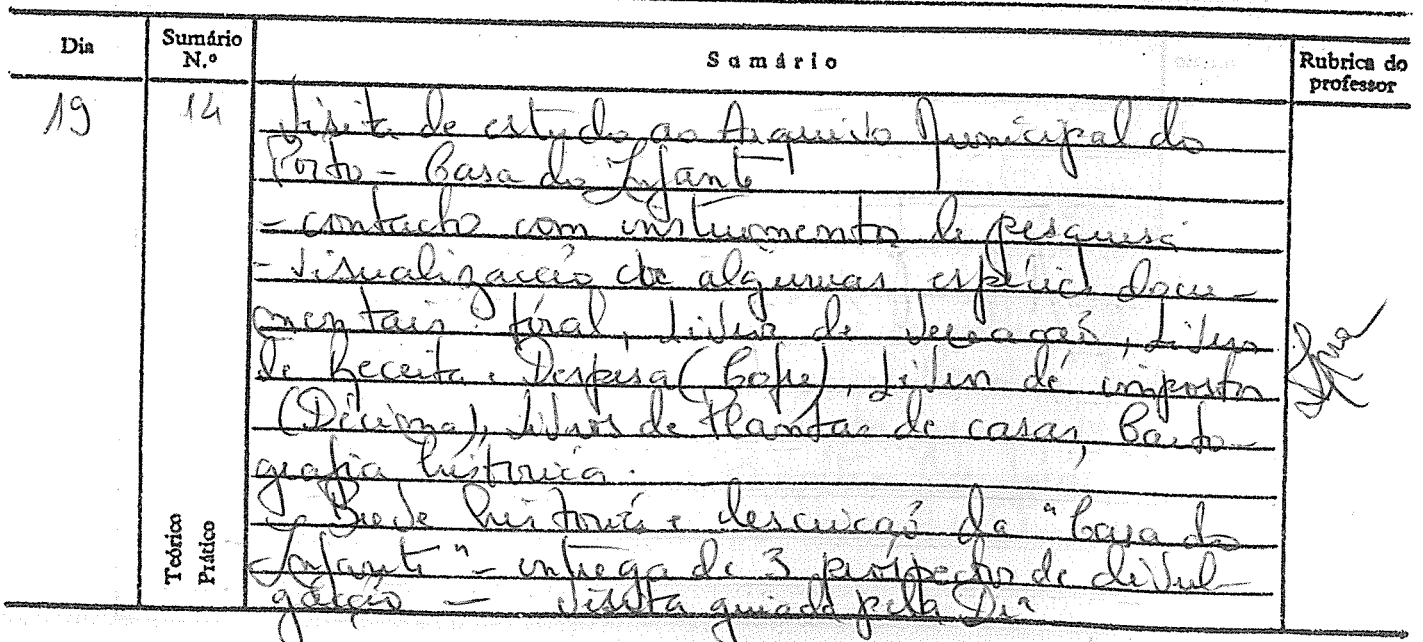 Dia Sumário N.º Sumário Rubrica do professor
19 14 Visita de estudo ao Arquivo Municipal do
Porto - Casa do Infante
- contacto com instrumentos de pesquisa
- Visualização de algumas espécies docu-
mentais: foral, Livro de Vereações, Livro
de Receita e Despesa (Cofre), Livro de impostos
(Décima), Livros de Plantas de casas, Carto-
grafia histórica.
- Breve história e descrição da "Casa do
Infante" - entrega de 3 prospectos de divul-
gação - Visita guiada pela Drª
Teórico
Prático